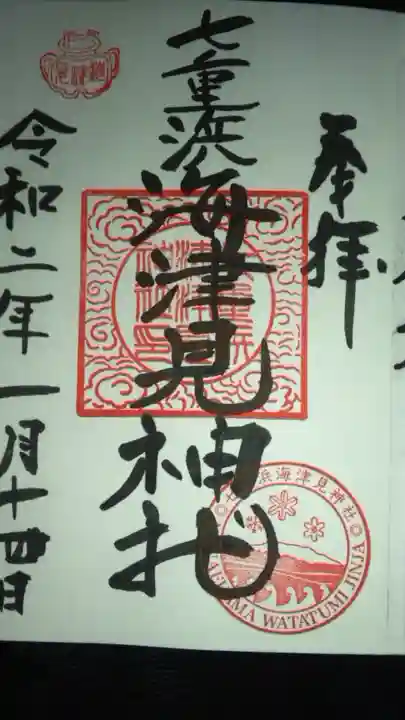 奉拝
七重浜
海津見神社
令和二年一月十四日
七重浜海津見神社
NAEHAMA WATATUMI JINJA